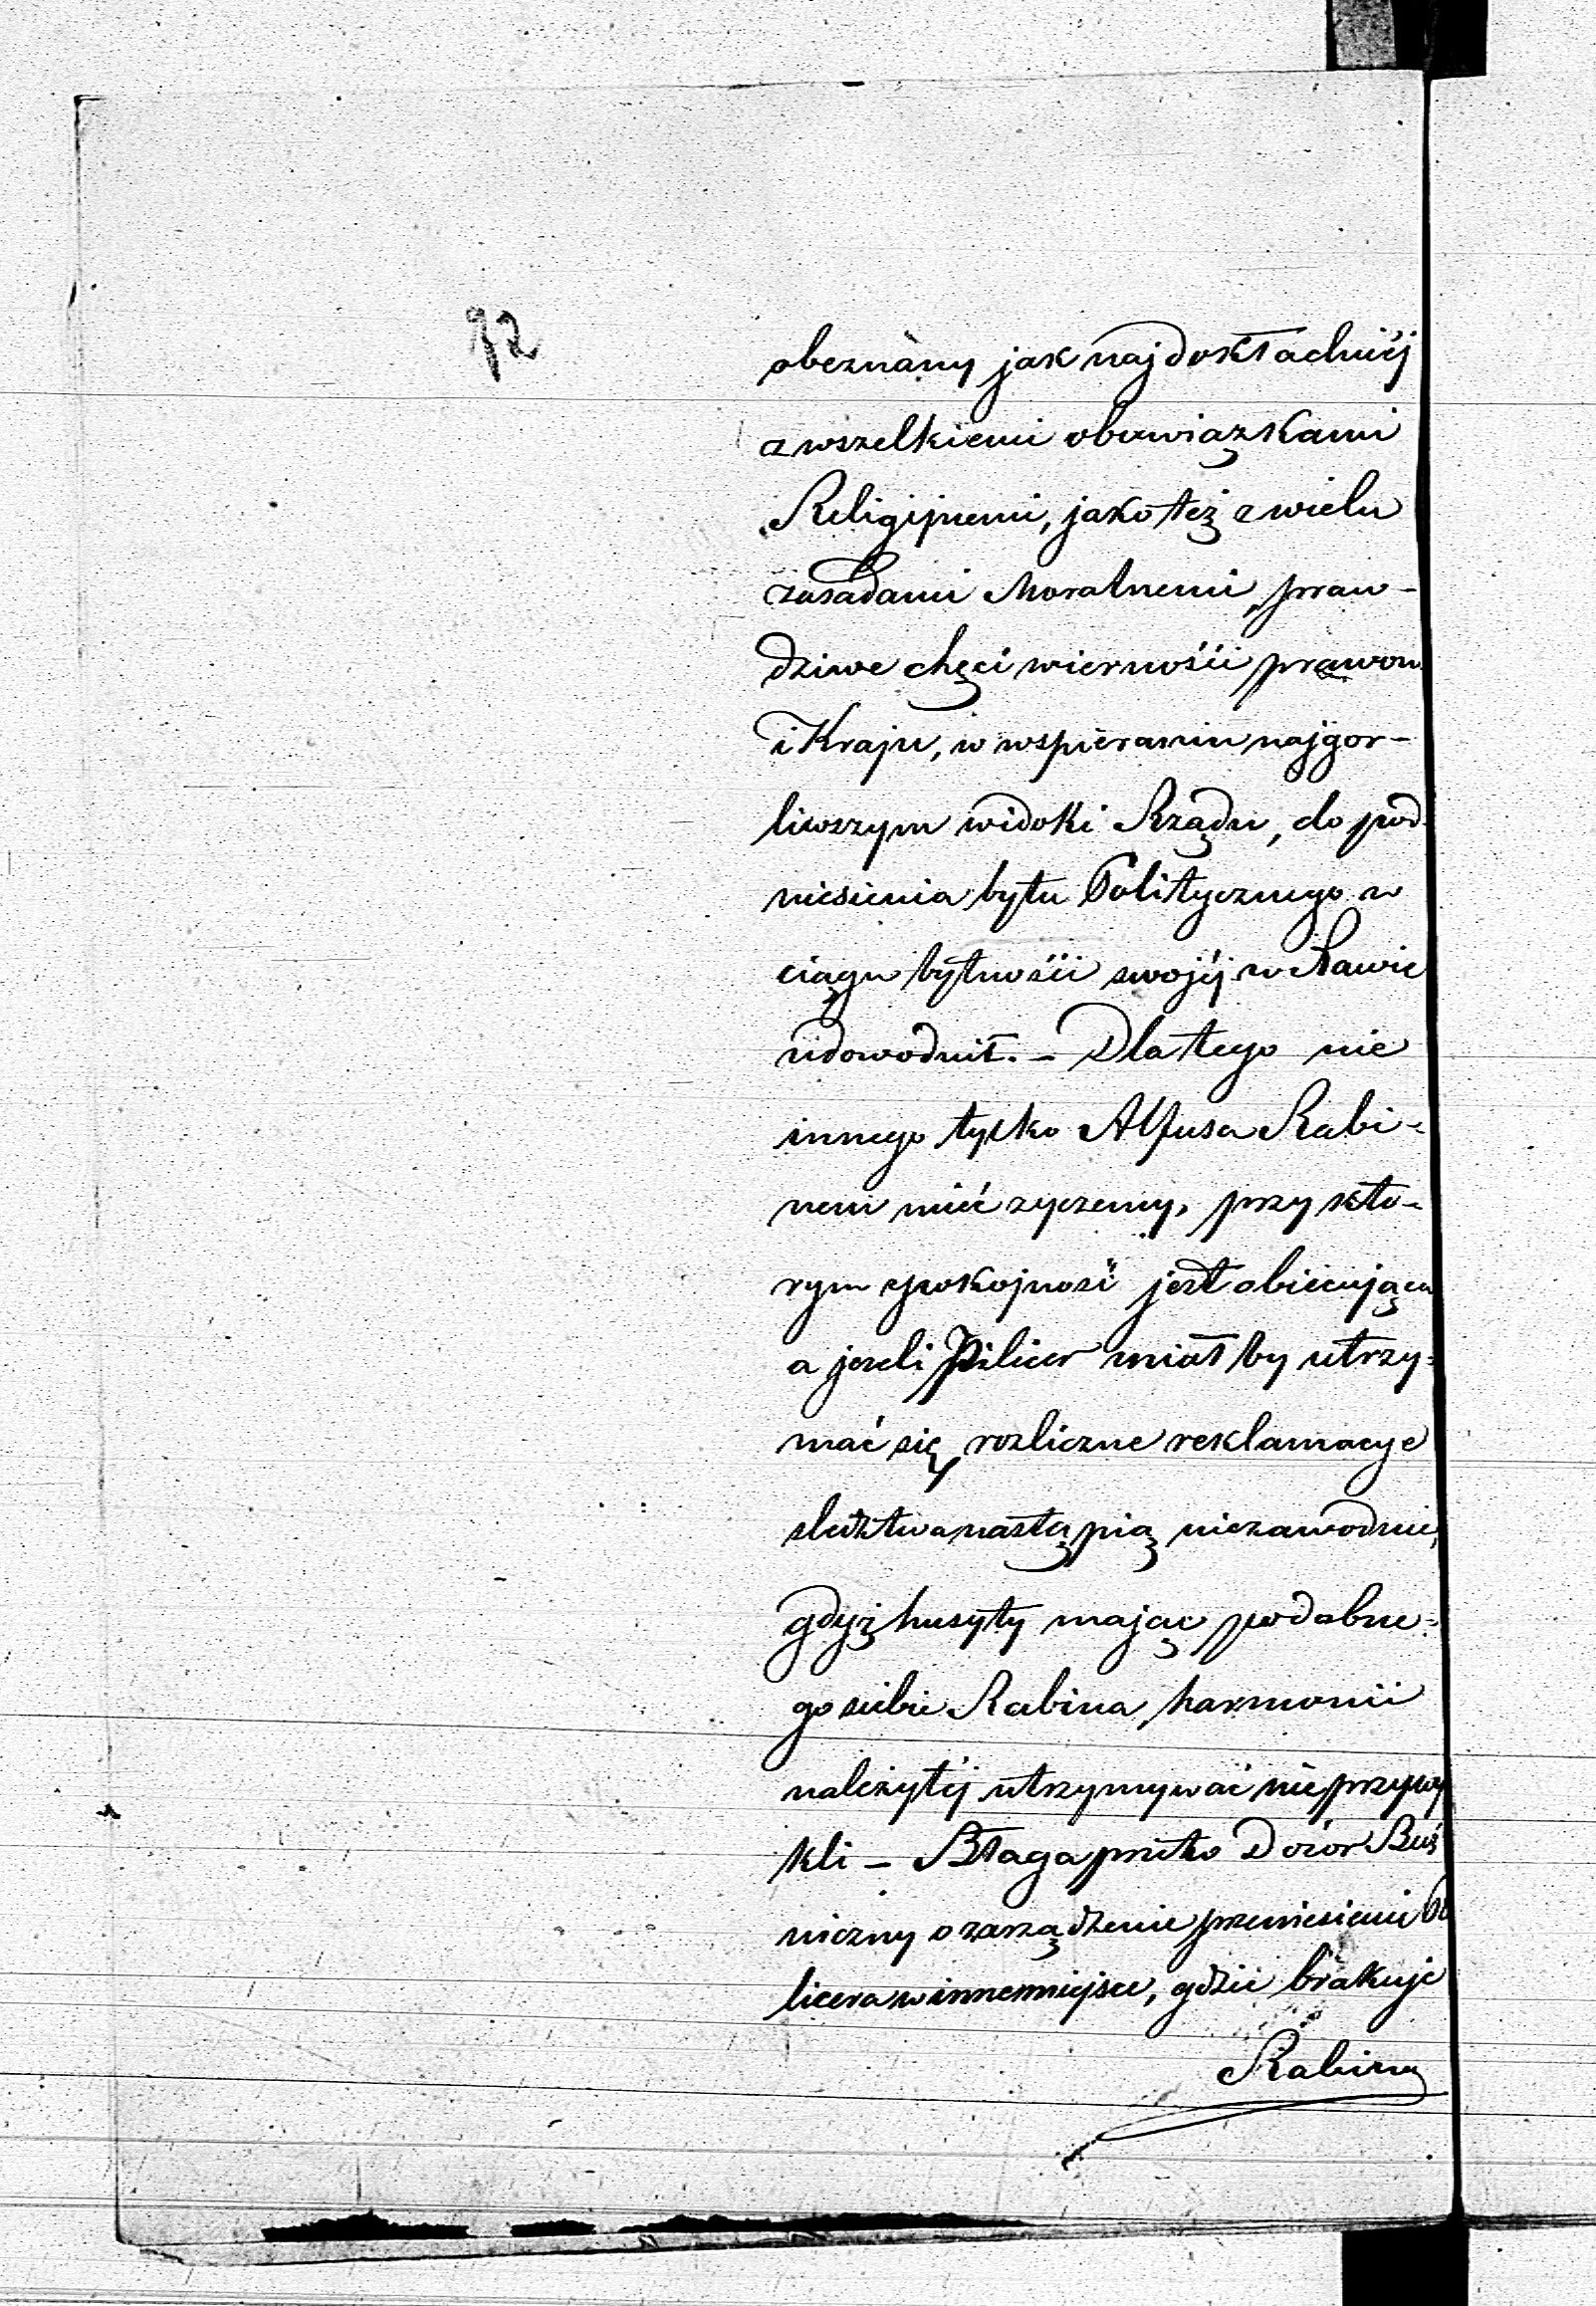 92
obeznany jak najdokładniéj
z wszelkiemi obowiązkami
Religijnemi, jako też z wielu
zasadami Moralnemi, praw-
dziwe chęci wierności prawom
i Kraju, w wspieraniu najgor-
liwszym widoki Rządu, do pod
niesienia bytu Politycznego w
ciągu bytności swojéj w Rawie
udowodnił. – Dla tego nie
innego tylko Alfusa Rabi-
nem mieć zyczemy, przy któ-
rym spokojność jest obiecująca
a jezeli Pilicer miał by utrzy-
mać się, rozliczne reklamacye
sledztwa nastąpią niezawodnie,
gdyż husyty mając podobne-
go siebie Rabina, harmonii
należytéj utrzymywać nie przywy
kli – Błaga prźeto Dozór Buż
niczny o zarządzenie przeniesienia Pi
licera w inne miejsce, gdzie brakuje
Rabina